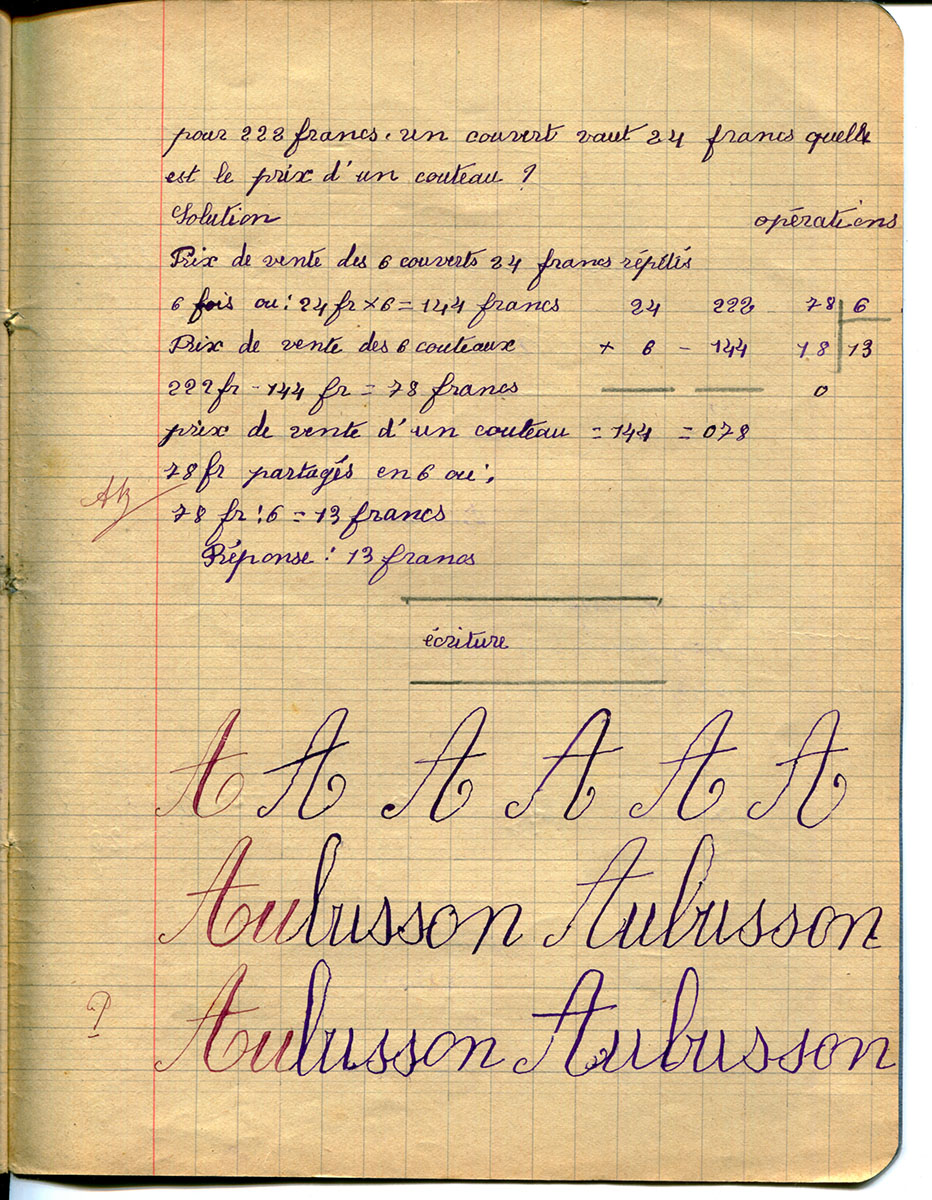 pour 222 francs. un couvert vaut 24 francs quelle
est le prix d'un couteau ?
Solution opérations
Prix de vente des 6 couverts 24 francs répétés
6 fois ou : 24 fr × 6 = 144 francs 24 222 78 6
Prix de vente des 6 couteaux × 6 - 144 18 13
222 fr - 144 fr = 78 francs 0
prix de vente d'un couteau = 144 = 078
78 fr partagés en 6 ou :
78 fr : 6 = 13 francs
Réponse : 13 francs
écriture
A A A A A A
Aubusson Aubusson
?
Aubusson Aubusson